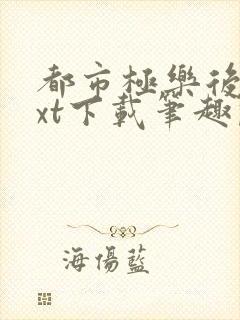 都市極樂後
xt下載筆趣
海傷藍